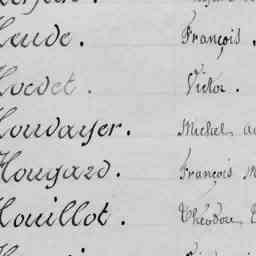 Heude. François.
Hoedet. Victor.
Houdayer. Michel
Hougard. François M
Houillot. Théodore